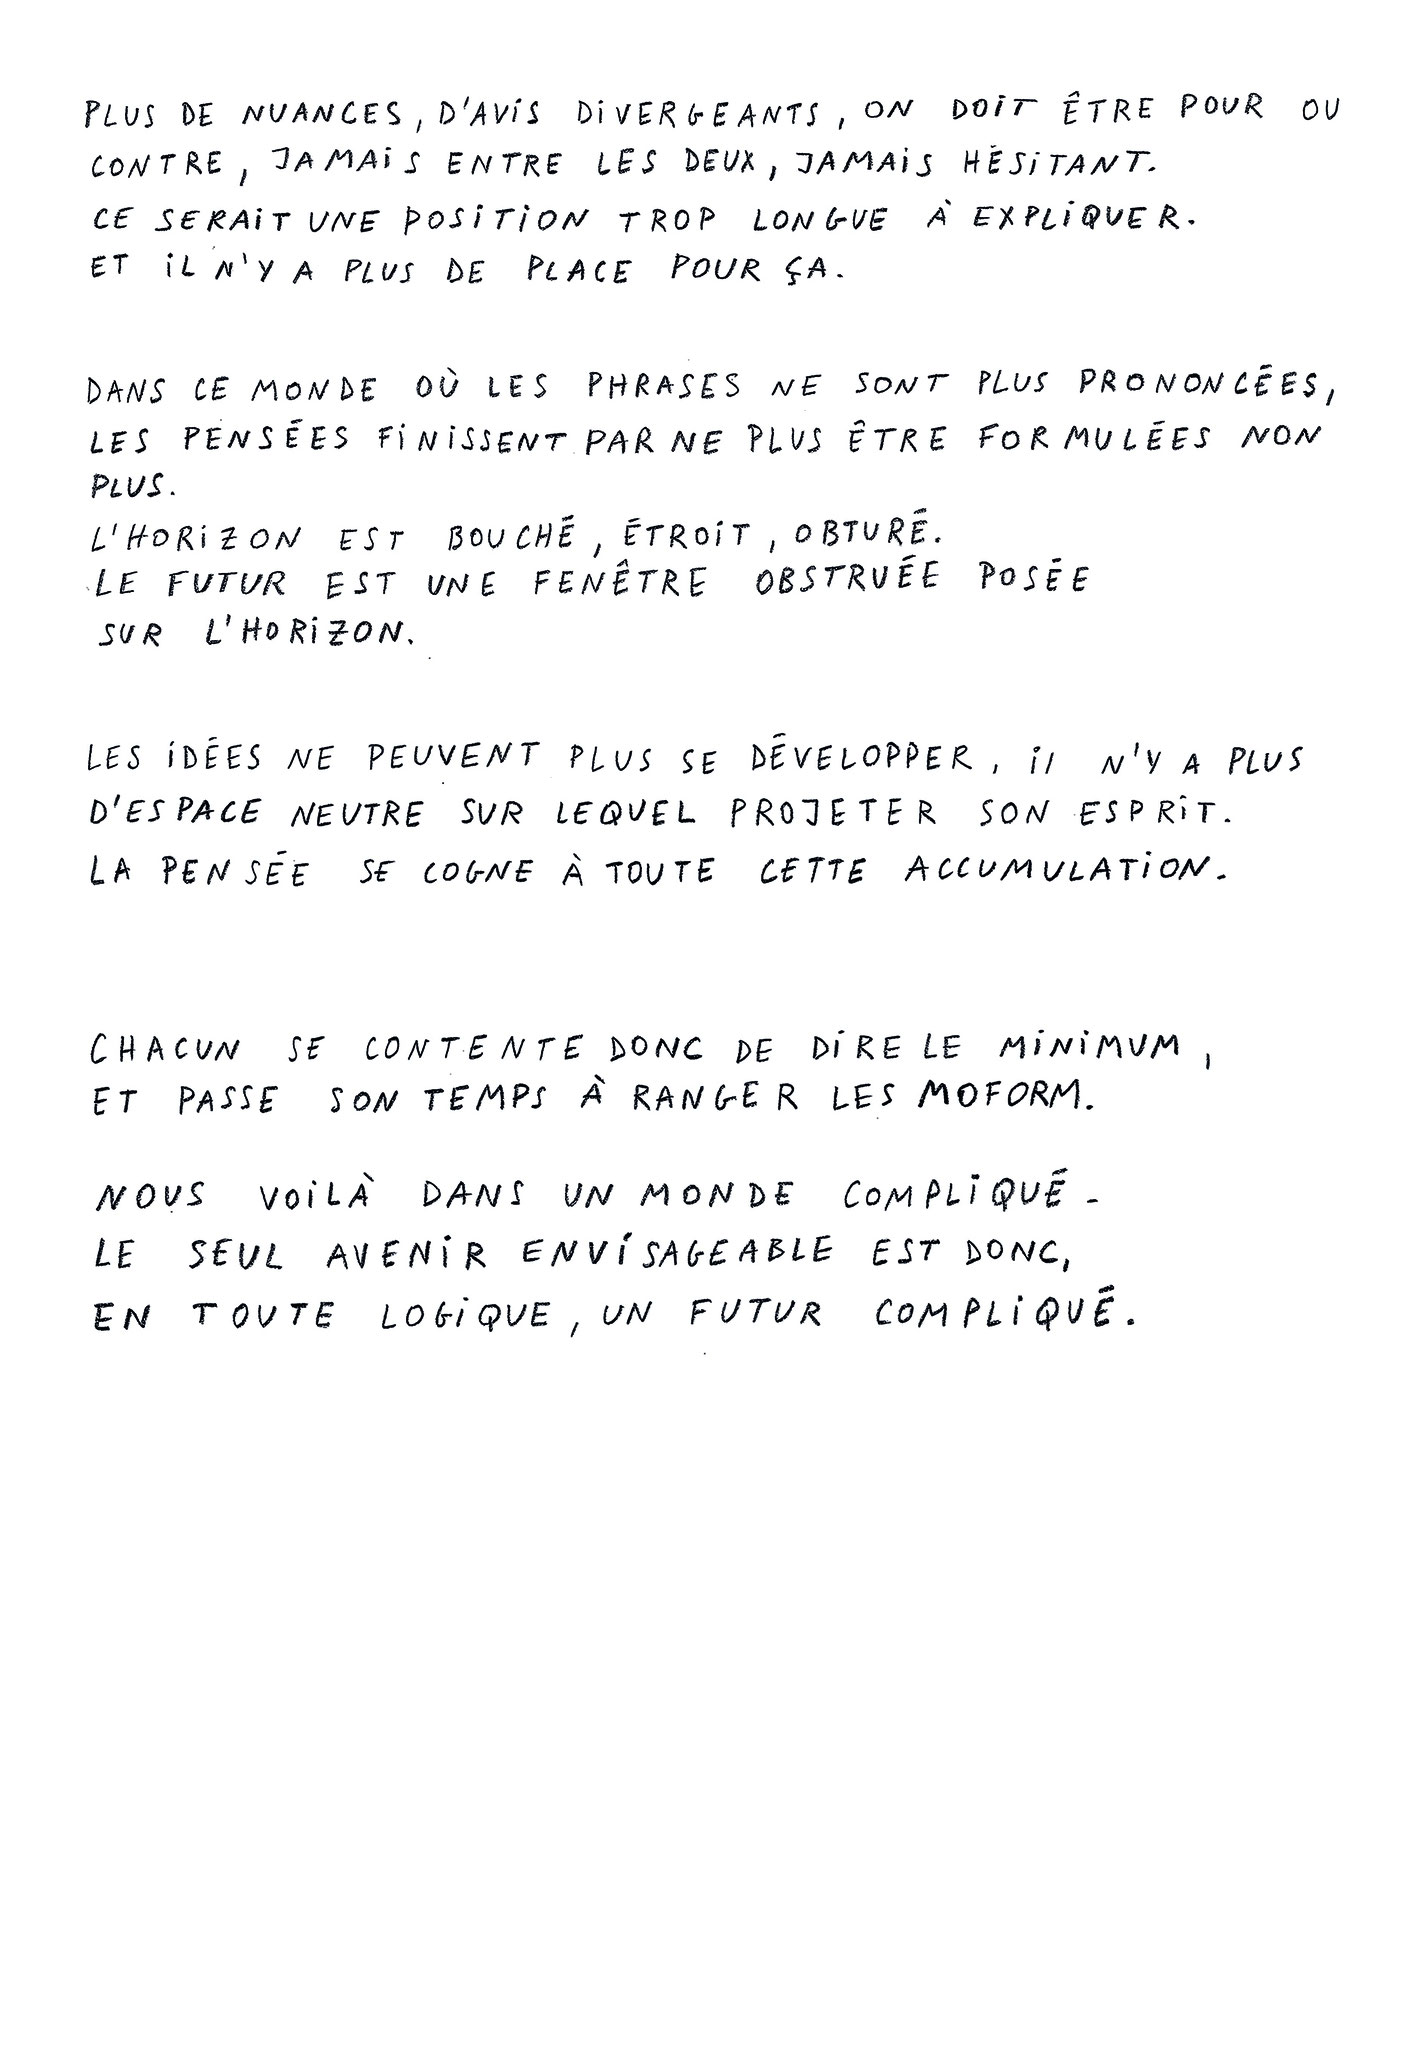 PLUS DE NUANCES, D'AVIS DIVERGEANTS, ON DOIT ÊTRE POUR OU
CONTRE, JAMAIS ENTRE LES DEUX, JAMAIS HÉSITANT.
CE SERAIT UNE POSITION TROP LONGUE À EXPLIQUER.
ET IL N'Y A PLUS DE PLACE POUR ÇA.
DANS CE MONDE OÙ LES PHRASES NE SONT PLUS PRONONCÉES,
LES PENSÉES FINISSENT PAR NE PLUS ÊTRE FORMULÉES NON
PLUS.
L'HORIZON EST BOUCHÉ, ÉTROIT, OBTURÉ.
LE FUTUR EST UNE FENÊTRE OBSTRUÉE POSÉE
SUR L'HORIZON.
LES IDÉES NE PEUVENT PLUS SE DÉVELOPPER, il N'Y A PLUS
D'ESPACE NEUTRE SUR LEQUEL PROJETER SON ESPRIT.
LA PENSÉE SE COGNE À TOUTE CETTE ACCUMULATION.
CHACUN SE CONTENTE DONC DE DIRE LE MINIMUM,
ET PASSE SON TEMPS À RANGER LES MOFORM.
NOUS VOILÀ DANS UN MONDE COMPLIQUÉ.
LE SEUL AVENIR ENVISAGEABLE EST DONC,
EN TOUTE LOGIQUE, UN FUTUR COMPLIQUÉ.